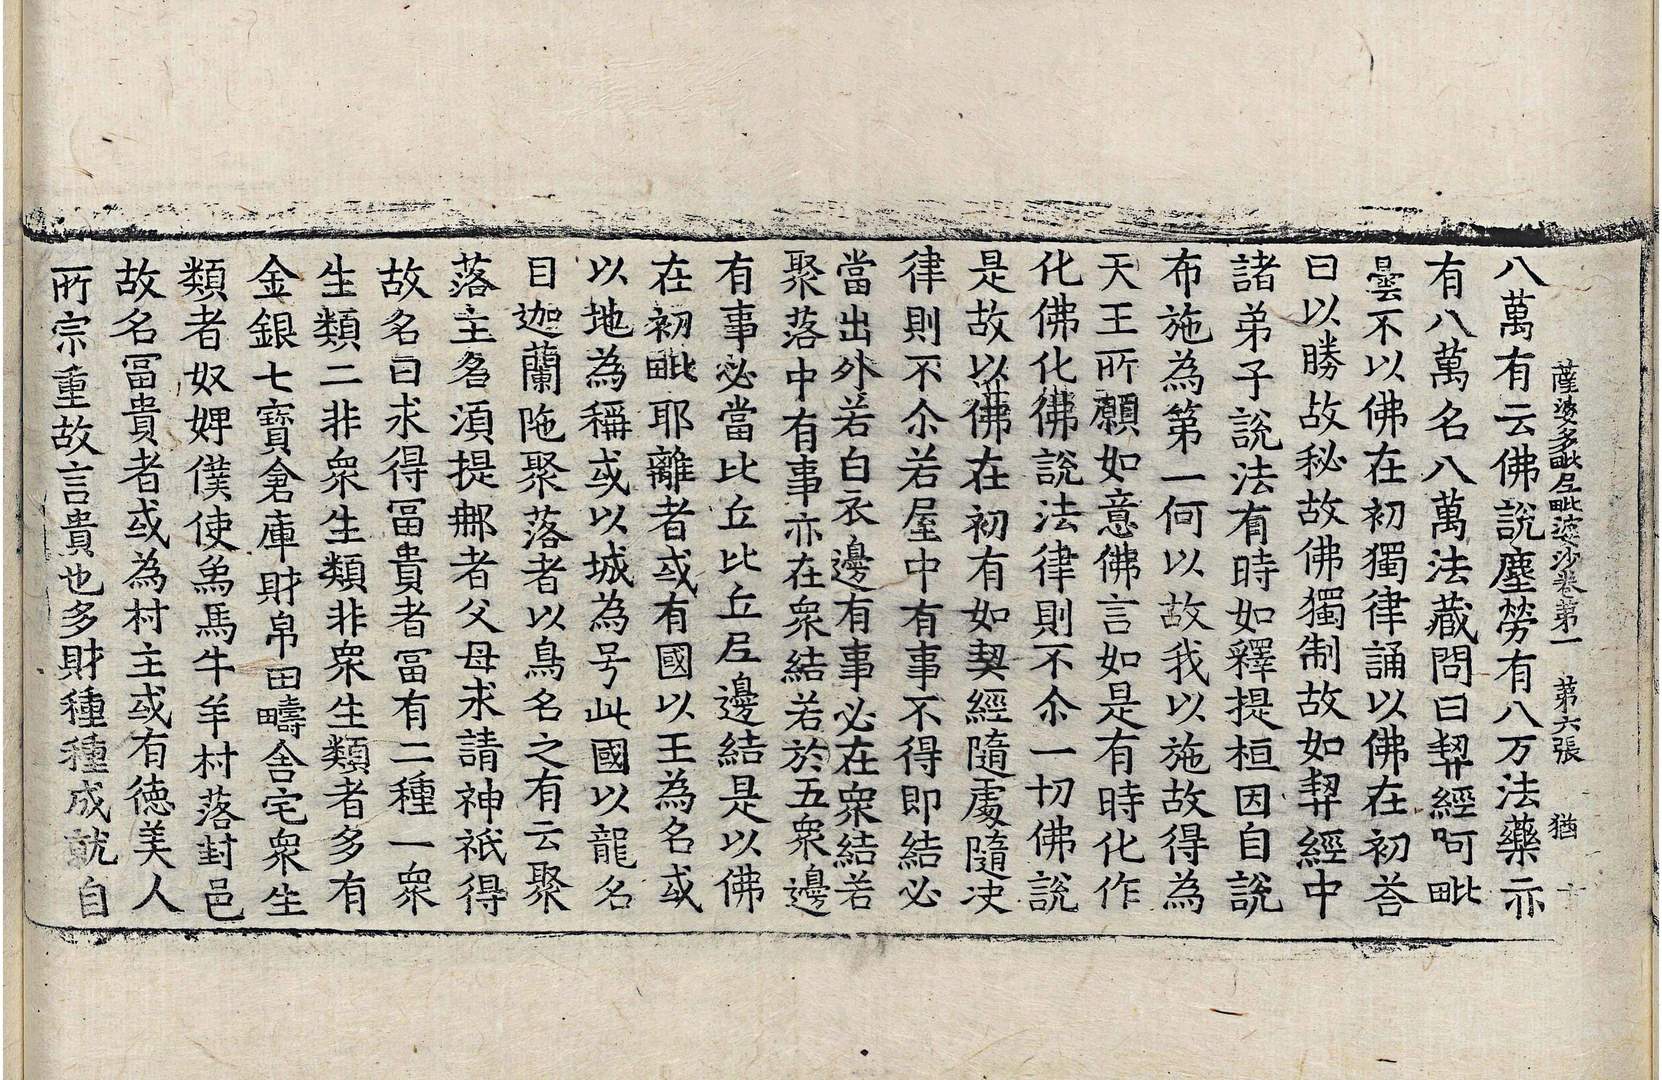 薩婆多毗尼毗婆沙卷第一　第六張　猶
八萬有云佛說塵勞有八万法藥亦
有八萬名八萬法藏問曰契經阿毗
曇不以佛在初獨律誦以佛在初荅
曰以勝故秘故佛獨制故如契經中
諸弟子說法有時如釋提桓因自說
布施為第一何以故我以施故得為
天王所願如意佛言如是有時化作
化佛化佛說法律則不尒一切佛說
是故以佛在初有如契經隨處隨决
律則不尒若屋中有事不得即結必
當出外若白衣邊有事必在衆結若
聚落中有事亦在衆結若於五衆邊
有事必當比丘比丘尼邊結是以佛
在初毗耶離者或有國以王為名或
以地為稱或以城為号此國以龍名
目迦蘭陁聚落者以鳥名之有云聚
落主名湏提那者父母求請神祇得
故名曰求得冨貴者冨有二種一衆
生類二非衆生類非衆生類者多有
金銀七寶倉庫財帛田疇舎宅衆生
類者奴婢僕使象馬牛羊村落封邑
故名冨貴者或為村主或有德美人
所宗重故言貴也多財種種成就自